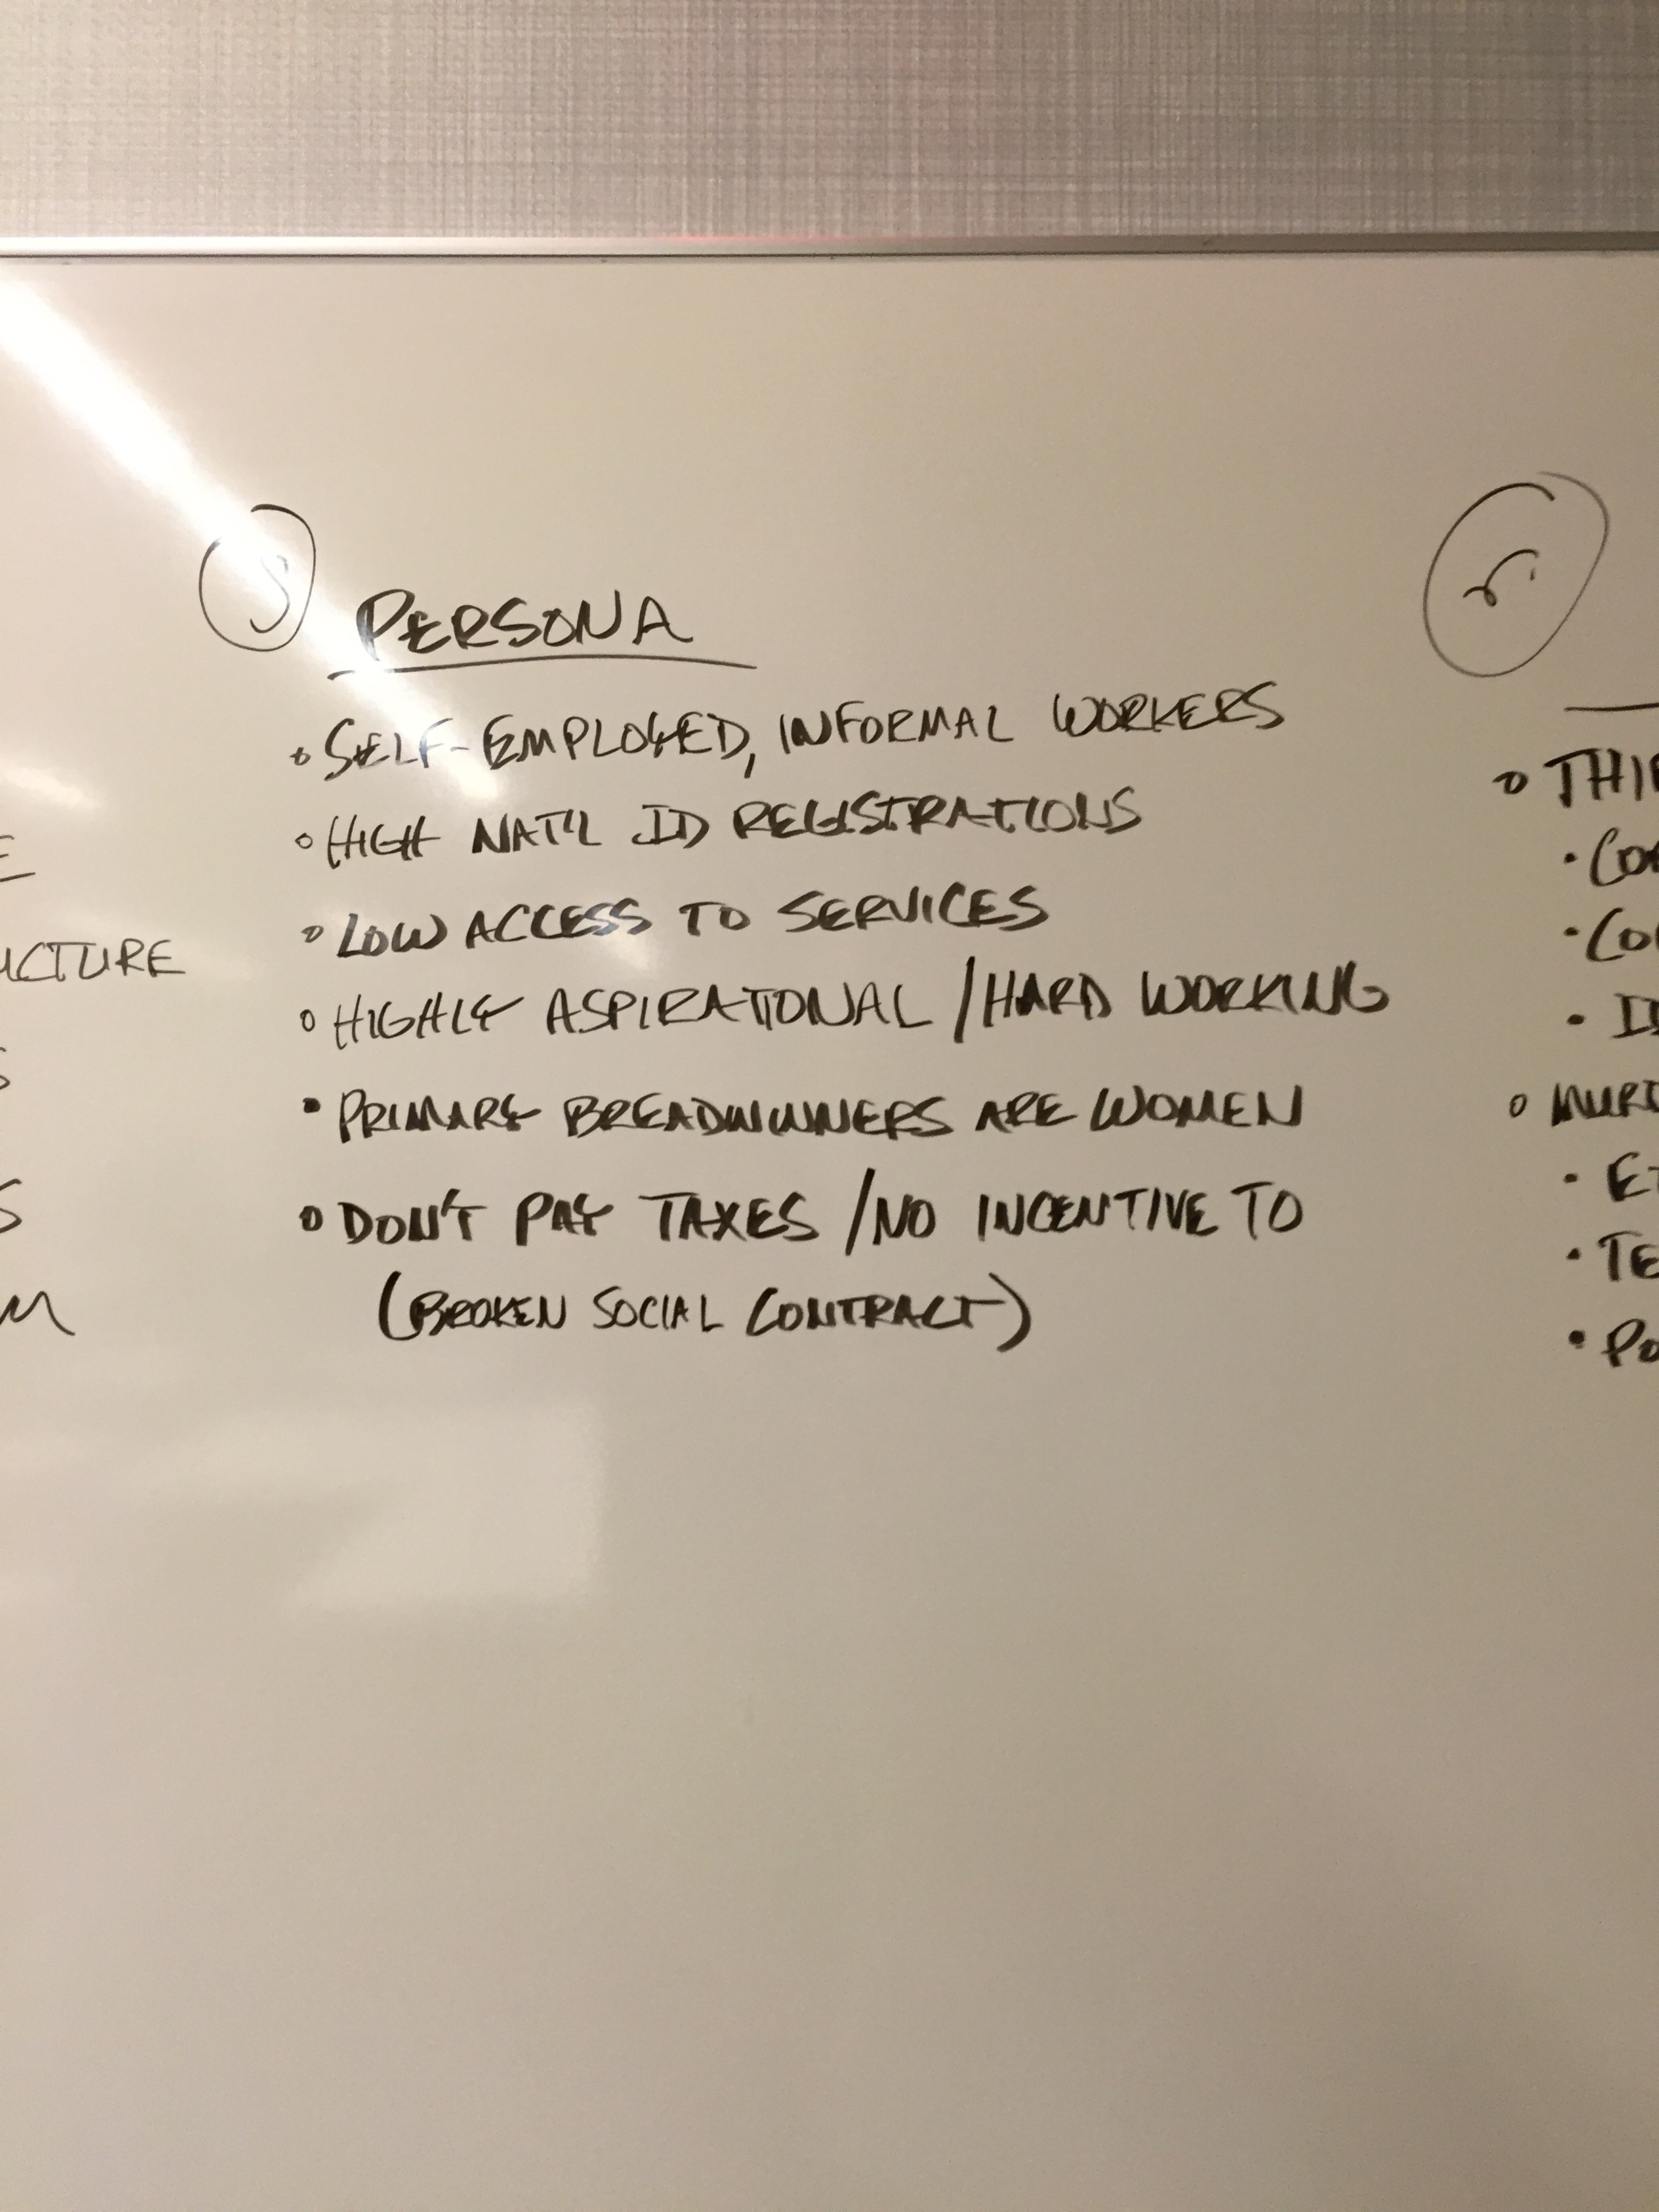 PERSONA
• SELF-EMPLOYED, INFORMAL WORKERS
• HIGH NAT'L ID REGISTRATIONS
• LOW ACCESS TO SERVICES
• HIGHLY ASPIRATIONAL / HARD WORKING
• PRIMARY BREADWINNERS ARE WOMEN
• DON'T PAY TAXES / NO INCENTIVE TO
(BROKEN SOCIAL CONTRACT)